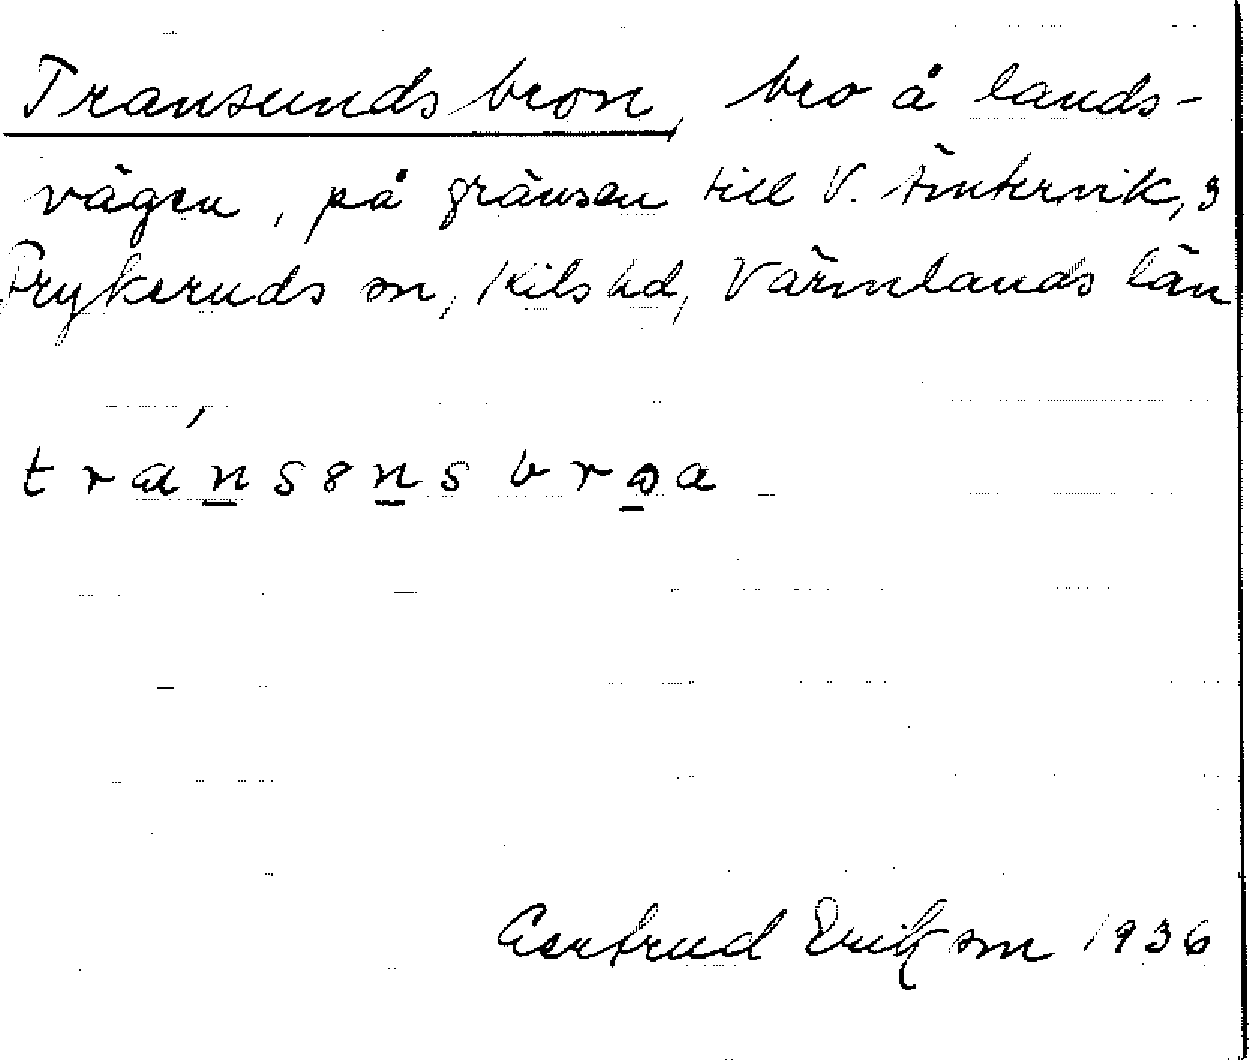 Transundsbron, bro å lands-
vägen, på gränsen till V. Ämtervik,
Frykeruds sn, Kils hd, Värmlands län
Gertrud Eriksson 1936